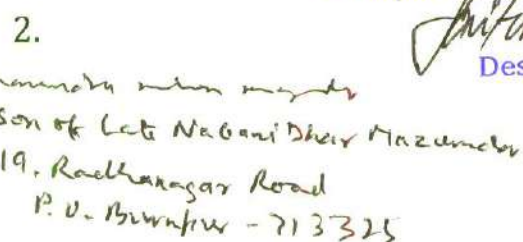 2.
Des
son of Late Nabani Dhar Mazumder
19, Radhanagar Road
P.O. Burnpur - 713325